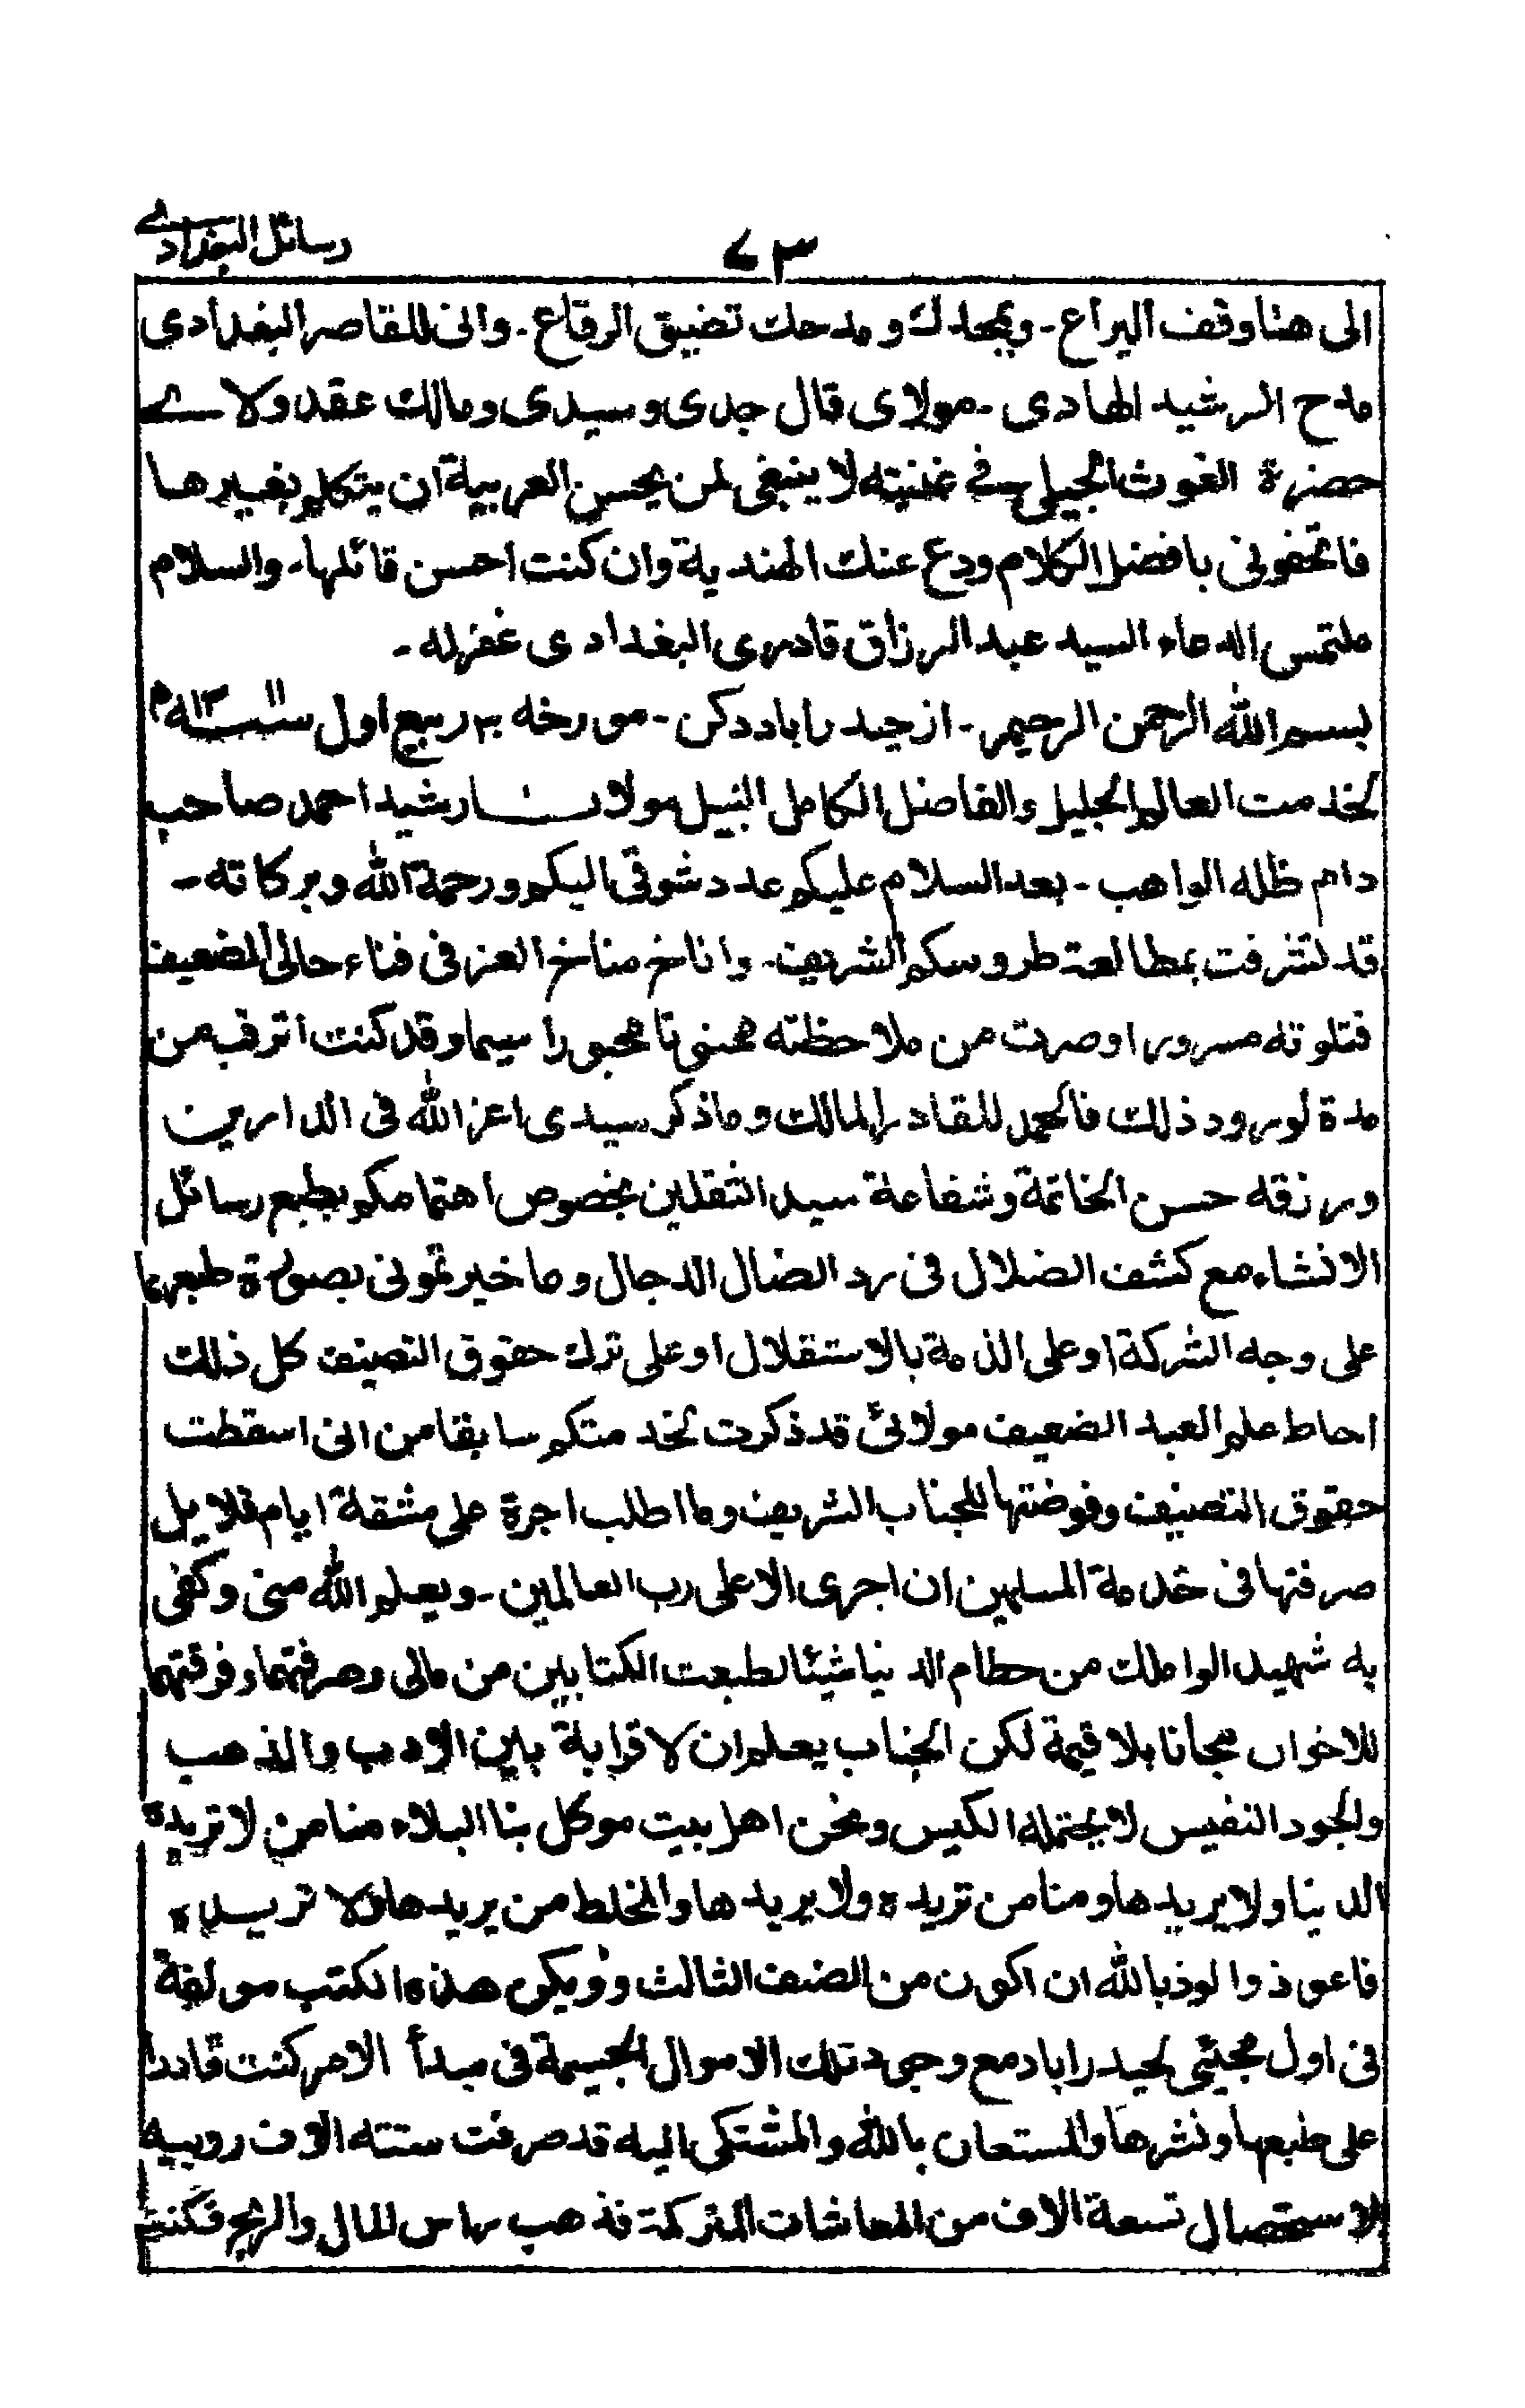 رسائل البغدادے
٧٣
الى هنا وقف اليراع ـ وبمجدك ومدحك تضيق الرقاع ـ وانى للقاصر البغدادى
مدح الرشيد الهادى ـ مولاى قال جدى وسيدى ومالك عقد ولاے
حضرة الغوث الجيلى فے غنيته لا ينبغى لمن يحسن العربية ان يتكلم بغيرها
فاتحفونى بافضل الكلام ودع عنك الهندية وان كنت احسن قائلها ـ والسلام
ملتمس الدعاء السيد عبد الرزاق قادرى البغدادى غفرله ـ
بسم الله الرحمن الرحيم ـ از حيدراباد دكن ـ مورخه ٣ ربيع اول
لخدمت العالم الجليل والفاضل الكامل النبيل مولانا رشيد احمد صاحب
دام ظله الواهب ـ بعد السلام عليكم عدد شوقى اليكم ورحمة الله وبركاته ـ
قد تشرفت بمطالعة طروسكم الشريف ـ واناخ مناخ العز فى فناء حالى الضعيف
فتلوته مسرورا وصرت من ملاحظته ممنونا محبورا سيما وقد كنت اترقب من
مدة لورود ذلك فالحمد للقادر المالك وما ذكر سيدى اعز الله فى الدارين
ورزقه حسن الخاتمة وشفاعة سيد الثقلين بخصوص اهتمامكم بطبع رسائل
الانشاء مع كشف الضلال فى رد الضال الدجال وما خيرتمونى بصورة طبعها
على وجه الشركة او على الذمة بالاستقلال او على ترك حقوق التصنيف كل ذلك
احاط علم العبد الضعيف مولائ قد ذكرت لخدمتكم سابقا من انى اسقطت
حقوق التصنيف وفوضتها للجناب الشريف وما اطلب اجرة على مشقة ايام قلايل
صرفتها فى خدمة المسلمين ان اجرى الا على رب العالمين ـ ويعلم الله منى وكفى
به شهيد الو املك من حطام الدنيا شيئا لطبعت الكتابين من مالى وصرفتهما وفرقتهما
للاخوان مجانا بلا قيمة لكن الجناب يعلم ان لا قرابة بين الادب والذهب
والجود النفيس لا يحتمله الكيس ونحن اهل بيت موكل بنا البلاء منا من لا تريده
الدنيا ولا يريدها ومنا من تريده ولا يريدها والمخلط من يريدها ولا تريده
فاعوذ والوذ بالله ان اكون من الصنف الثالث ولو يكن هذه الكتب مولفة
فى اول مجيئى لحيدراباد مع وجود تلك الاموال الجسيمة فى مبدأ الامر كنت قادرا
على طبعها ونشرها والمستعان بالله والمشتكى اليه قد صرفت ستته الاف روبيه
لاستحصال تسعة الاف من المعاشات المتركمة فذهب راس المال والربح فكنت